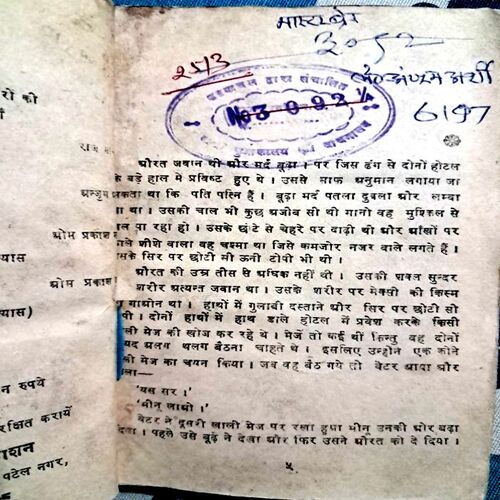 रों की
राज
ओम प्रकाश
ओम प्रकाश
यास)
न रुपये
रक्षित करायें
शन
पटेल नगर,
मास्टर
2513
३०९२
No 3092 1/4
6197
औरत जवान थी और मर्द बूढ़ा । पर जिस ढंग से दोनों होटल
के बड़े हाल में प्रविष्ट हुए थे । उससे साफ अनुमान लगाया जा
सकता था कि पति पत्नि हैं । बूढ़ा मर्द पतला दुबला और लम्बा
था । उसकी चाल भी कुछ अजीब सी थी मानो वह मुश्किल से
पा रहा हो । उसके छोटे से चेहरे पर दाढ़ी थी और आंखों पर
शीशे वाला वह चश्मा था जिसे कमजोर नजर वाले लगते हैं ।
सके सिर पर छोटी सी ऊनी टोपी भी थी ।
औरत की उम्र तीस से अधिक नहीं थी । उसकी शक्ल सुन्दर
शरीर अत्यन्त जवान था । उसके शरीर पर मैक्सी की किस्म
गाऊन था । हाथों में गुलाबी दस्ताने और सिर पर छोटी सी
थी । दोनों हाथों में हाथ डाले होटल में प्रवेश करके किसी
मेज की खोज कर रहे थे । मेजें तो कई थीं किन्तु वह दोनों
यद अलग थलग बैठना चाहते थे । इसलिए उन्होंने एक कोने
की मेज का चयन किया । जब वह बैठ गये तो बेटर आया और
ला—
'यस सर ।'
'मीनू लाओ ।'
बेटर ने दूसरी खाली मेज पर रखा हुआ मीनू उनकी ओर बढ़ा
दिया । पहले उसे बूढ़े ने देखा और फिर उसने औरत को दे दिया ।
५